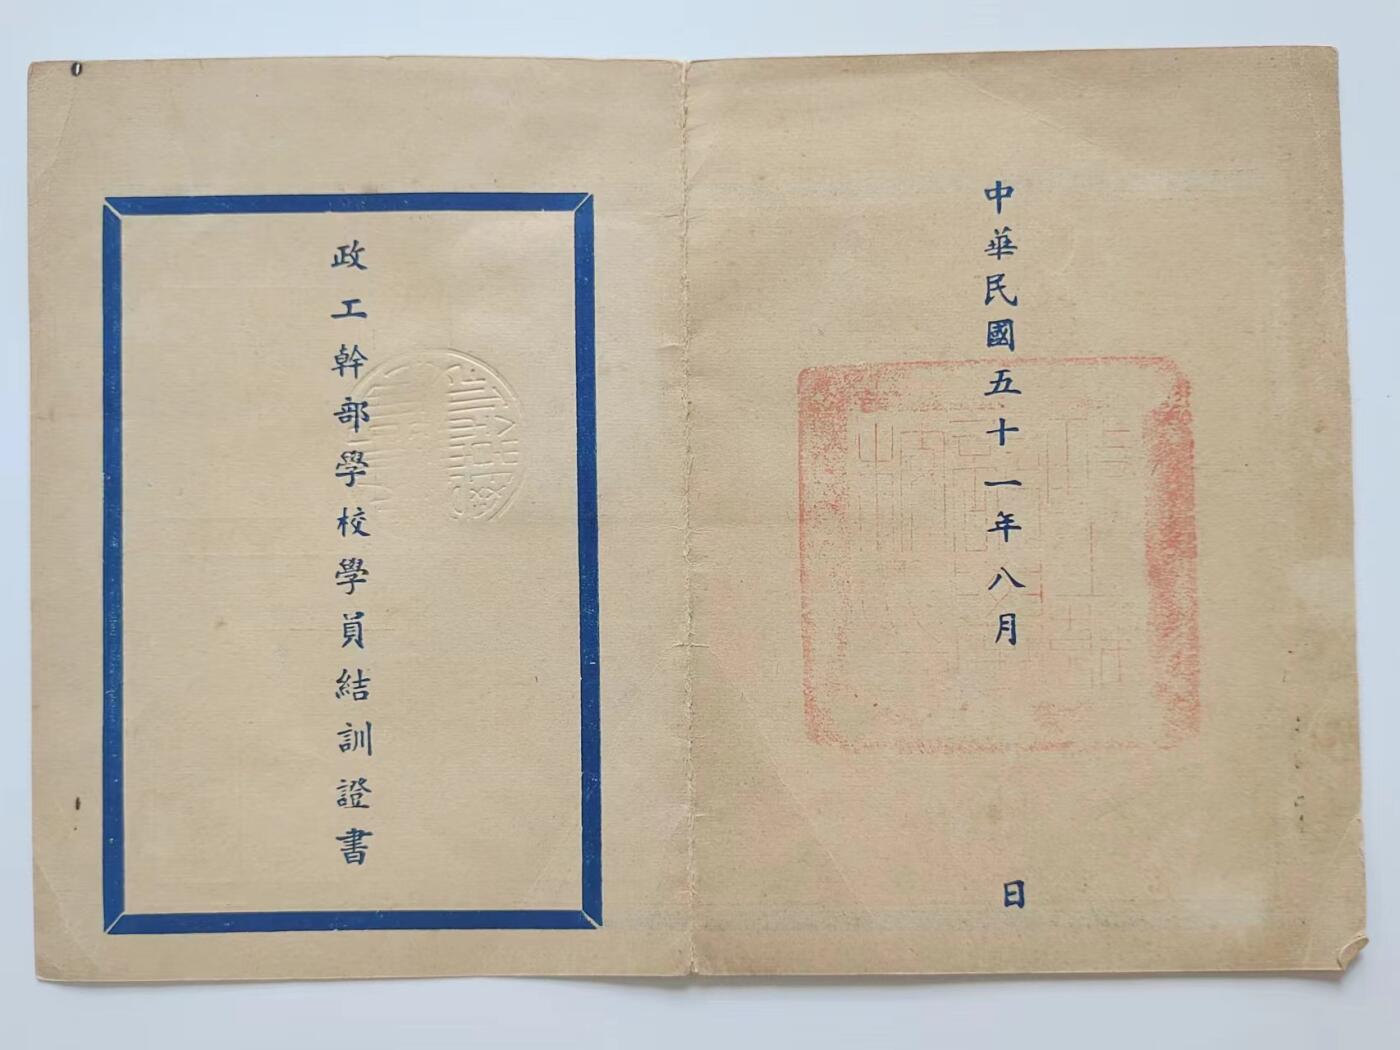 中華民國五十一年八月 日
政工幹部學校學員結訓證書